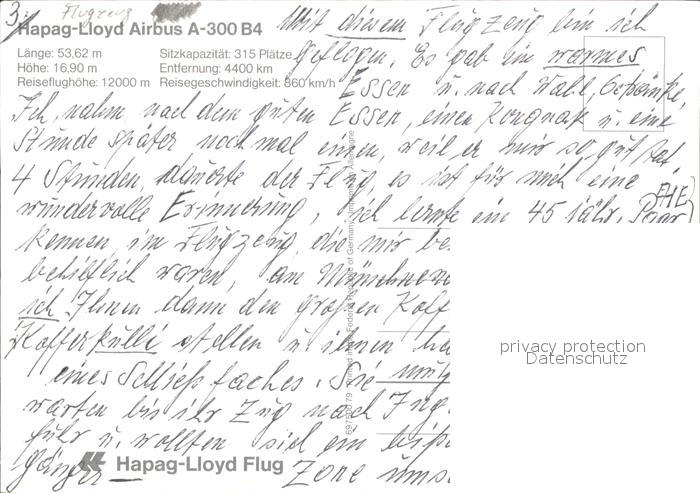 3. Flugzeug
Hapag-Lloyd Airbus A-300 B4
Länge: 53,62 m Sitzkapazität: 315 Plätze
Höhe: 16,90 m Entfernung: 4400 km
Reiseflughöhe: 12000 m Reisegeschwindigkeit: 860 km/h
Mit diesem Flugzeug bin ich
geflogen. Es gab ein warmes
Essen u. nach Wahl, Getränke,
Ich, nahm nach dem guten Essen, einen Kongnak u. eine
Stunde später noch mal einen, weil er mir so gut tat
4 Stunden, dauerte der Flug, es ist für mich eine
wundervolle Erinnerung, ich lernte ein 45 jähr. EHE Paar
kennen, im Flugzeug, die mir be
behilflich waren, am Münchner
ich Ihnen dann den großen Koff
Kofferkulli stellen u. ihnen
eines Schließfaches. Sie
warten bis ihr Zug nach Ing
fuhr u. wollten sich ein biß
Zone ums
Hapag-Lloyd Flug
privacy protection
Datenschutz